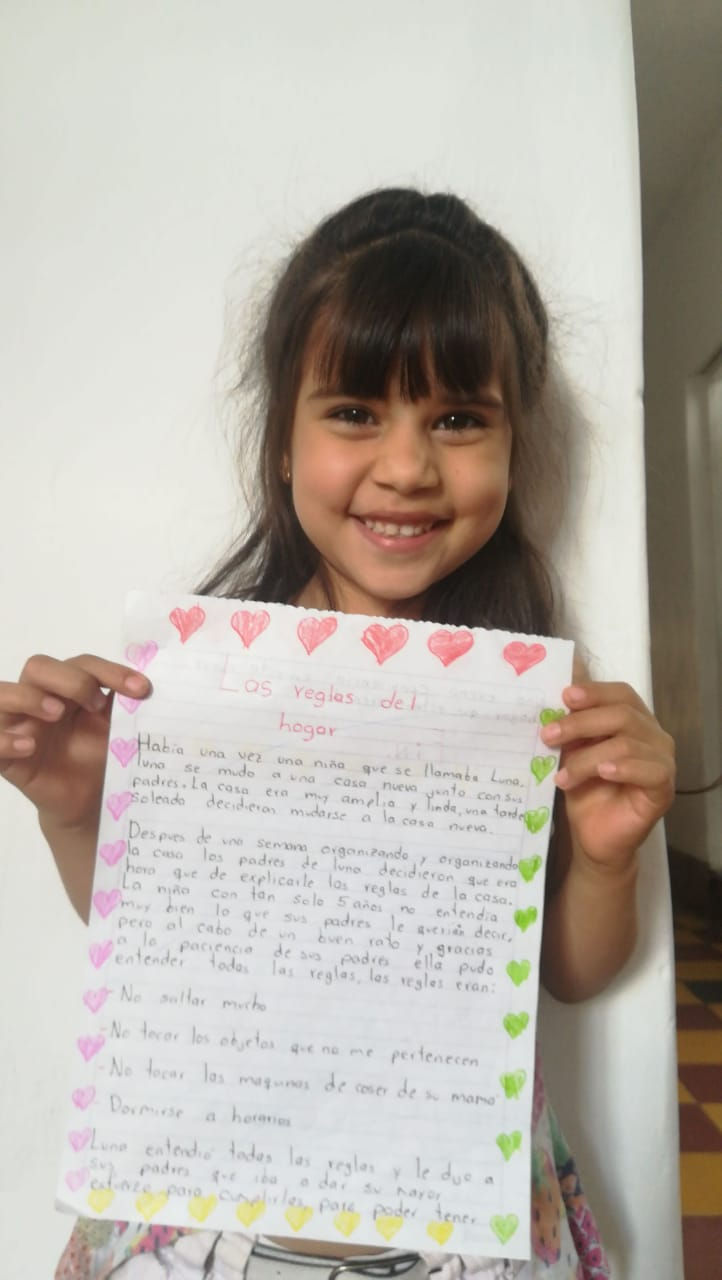 Las reglas del
hogar
Habia una vez una niña que se llamaba Luna,
luna se mudo a una casa nueva junto con sus
padres. La casa era muy amplia y linda, una tarde
soleada decidieron mudarse a la casa nueva.
Despues de una semana organizando y organizando
la casa los padres de luna decidieron que era
hora que de explicarle las reglas de la casa.
La niña con tan solo 5 años no entendia
muy bien lo que sus padres le querían decir,
pero al cabo de un buen rato y gracias
a la paciencia de sus padres ella pudo
entender todas las reglas, las reglas eran:
- No saltar mucho
- No tocar los objetos que no me pertenecen
- No tocar las maquinas de coser de su mamá
- Dormirse a horarios
Luna entendió todas las reglas y le dijo a
sus padres que iba a dar su mayor
esfuerzo para cumplirlas para poder tener